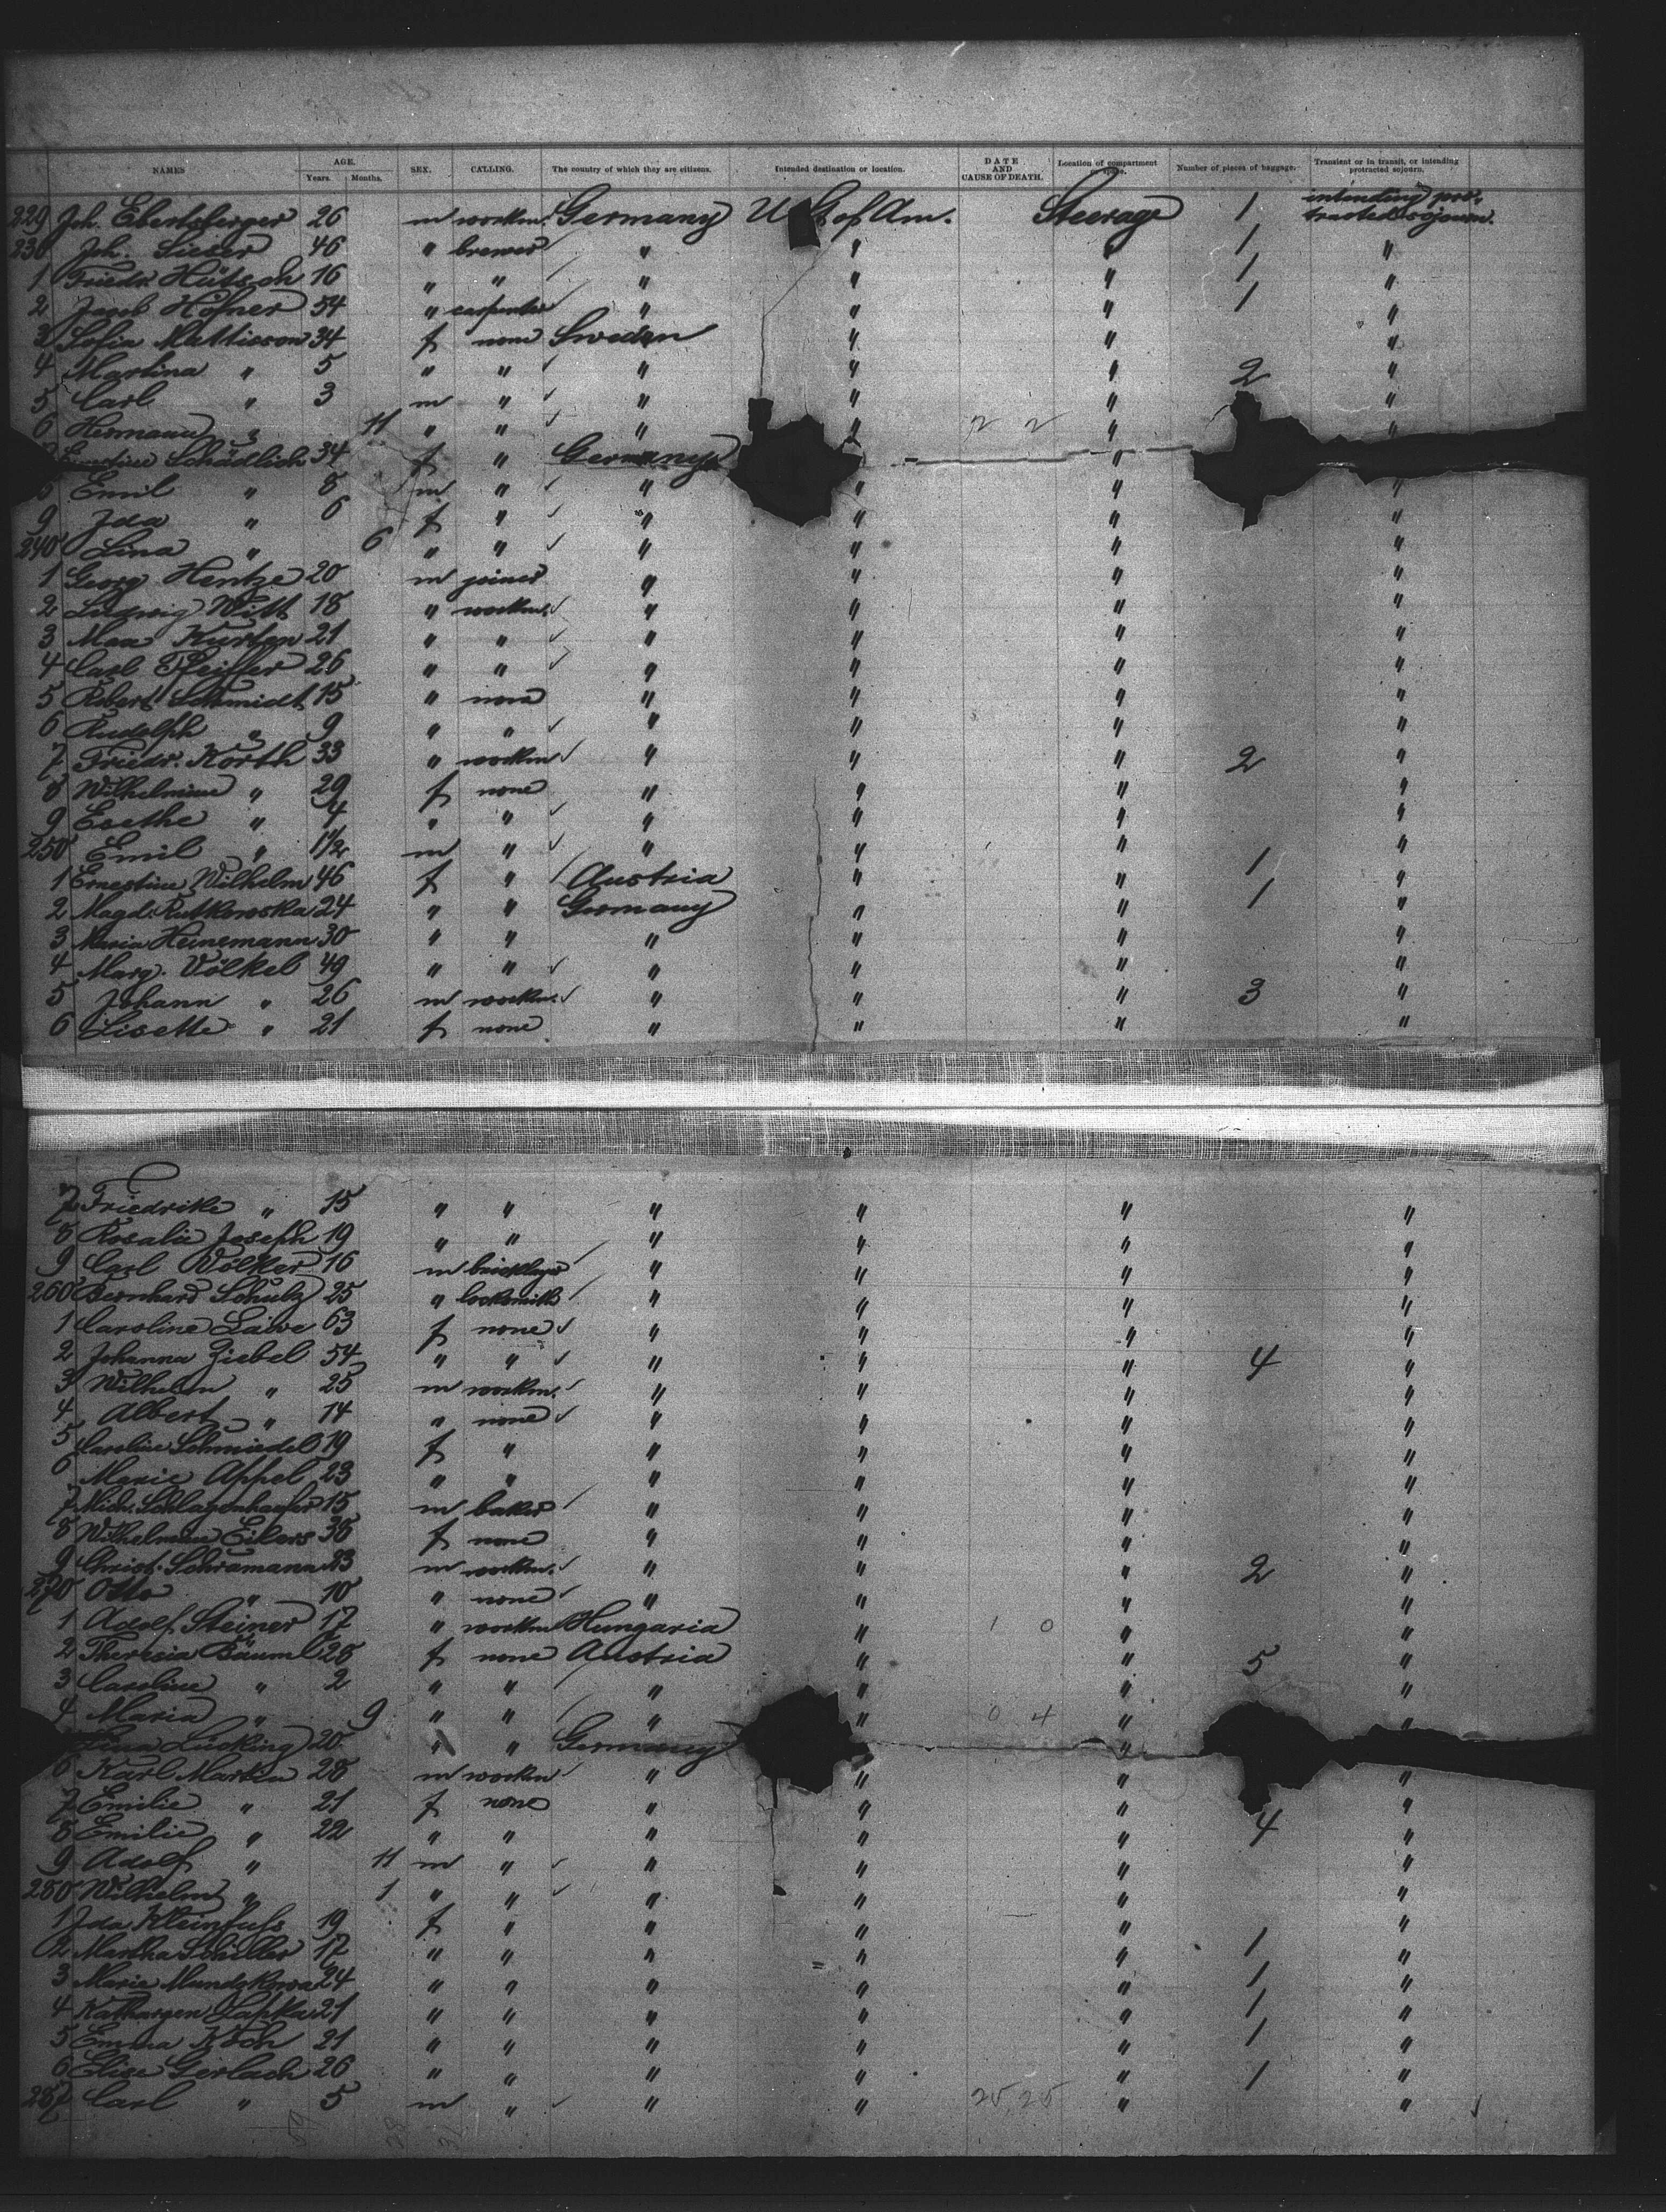 NAMES AGE. Years. Months. SEX. CALLING. The country of which they are citizens. Intended destination or location. DATE AND CAUSE OF DEATH. Location of compartment or space. Number of pieces of baggage. Transient or in transit, or intending protracted sojourn.
229 Joh. Ebertsberger 26 m workm. Germany U. St. of Am. Steerage 1 intending protracted sojourn.
230 Joh. Sieber 46 " brewer " " " 1 "
1 Friedr. Hütsch 16 " " " " " 1 "
2 Jacob Höfner 54 " carpenter " " " 1 "
3 Sofia Mattisson 34 f none Sweden " "
4 Martina " 5 " " " " " 2 "
5 Carl " 3 m " " " " "
6 Hermann " 11 " " " " 2 2 " "
Schädlich 34 f " Germany "
8 Emil " 8 m " " " " "
9 Ida " 6 f " " " " "
240 Lina " 6 " " " " " "
1 Georg Hentze 20 m joiner " " " "
2 Ludwig Witt 18 " workm. " " " "
3 Max Kurten 21 " " " " " "
4 Carl Pfeiffer 26 " " " " " "
5 Robert Schmidt 15 " none " " " "
6 Rudolph " 9 " " " " " "
7 Friedr. Korth 33 " workm " " " 2 "
8 Wilhelmine " 29 f none " " " "
9 Esethe " 4 " " " " " "
250 Emil " 1 1/2 m " " " " 1 "
1 Ernestine Wilhelm 46 f " Austria " " 1 "
2 Magd. Rutkowska 24 " " Germany " " "
3 Maria Heinemann 30 " " " " " "
4 Marg. Völkel 49 " " " " " "
5 Johann " 26 m workm. " " " 3 "
6 Lisette " 21 f none " " " "
7 Friedrike " 15 " " " " " "
8 Rosalie Joseph 19 " " " " " "
9 Carl Völker 16 m bricklayer " " " "
260 Bernhard Schulz 25 " locksmith " " " "
1 Caroline Laive 63 f none " " " "
2 Johanna Ziebel 54 " " " " " 4 "
3 Wilhelm " 25 m workm. " " " "
4 Albert " 14 " none " " " "
5 Caroline Schmiedel 19 f " " " " "
6 Marie Appel 23 " " " " " "
7 Mich. Schlagenhaufer 15 m baker " " " "
8 Wilhelmine Eikers 38 f none " " " "
9 Christ. Schramann 23 m workm. " " " 2 "
270 Otto " 10 " none " " " "
1 Adolf Steiner 17 " workm Hungaria " 1 0 " "
2 Theresia Bäuml 28 f none Austria " " 5 "
3 Caroline " 2 " " " " " "
4 Maria " 9 " " " " 0 4 " "
Lina Lücking 20 " " Germany "
6 Karl Martin 28 m workm " " " "
7 Emilie " 21 f none " " " "
8 Emilie " 22 " " " " " 4 "
9 Adolf " 11 m " " " " "
280 Wilhelm " 1 " " " " " "
1 Ida Kleinfuss 19 f " " " " "
2 Martha Schiller 17 " " " " " 1 "
3 Marie 24 " " " " " 1 "
4 21 " " " " " 1 "
5 Emma Koch 21 " " " " " 1 "
6 Elise Gerlach 26 " " " " " 1 "
287 Carl " 5 m " " " 25,25 " "